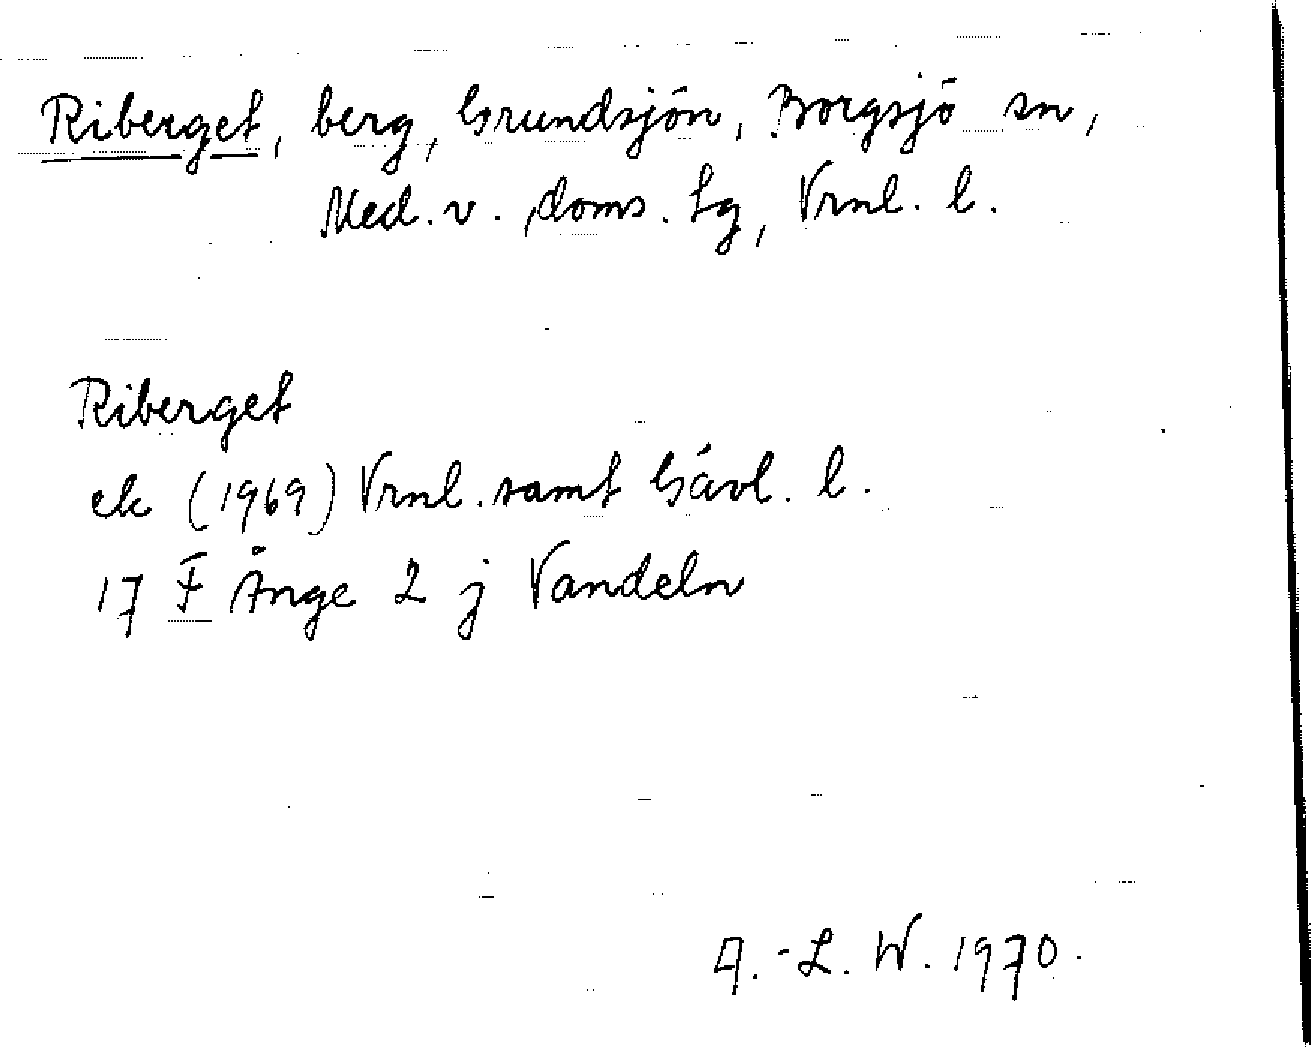 Riberget, berg, Grundsjön, Borgsjö sn,
Med. v. doms. lg, Vrnl. l.
Riberget
ek (1969) Vrnl. samt Gävl. l.
17 F Ånge 2 j Vandeln
A.-L. W. 1970.